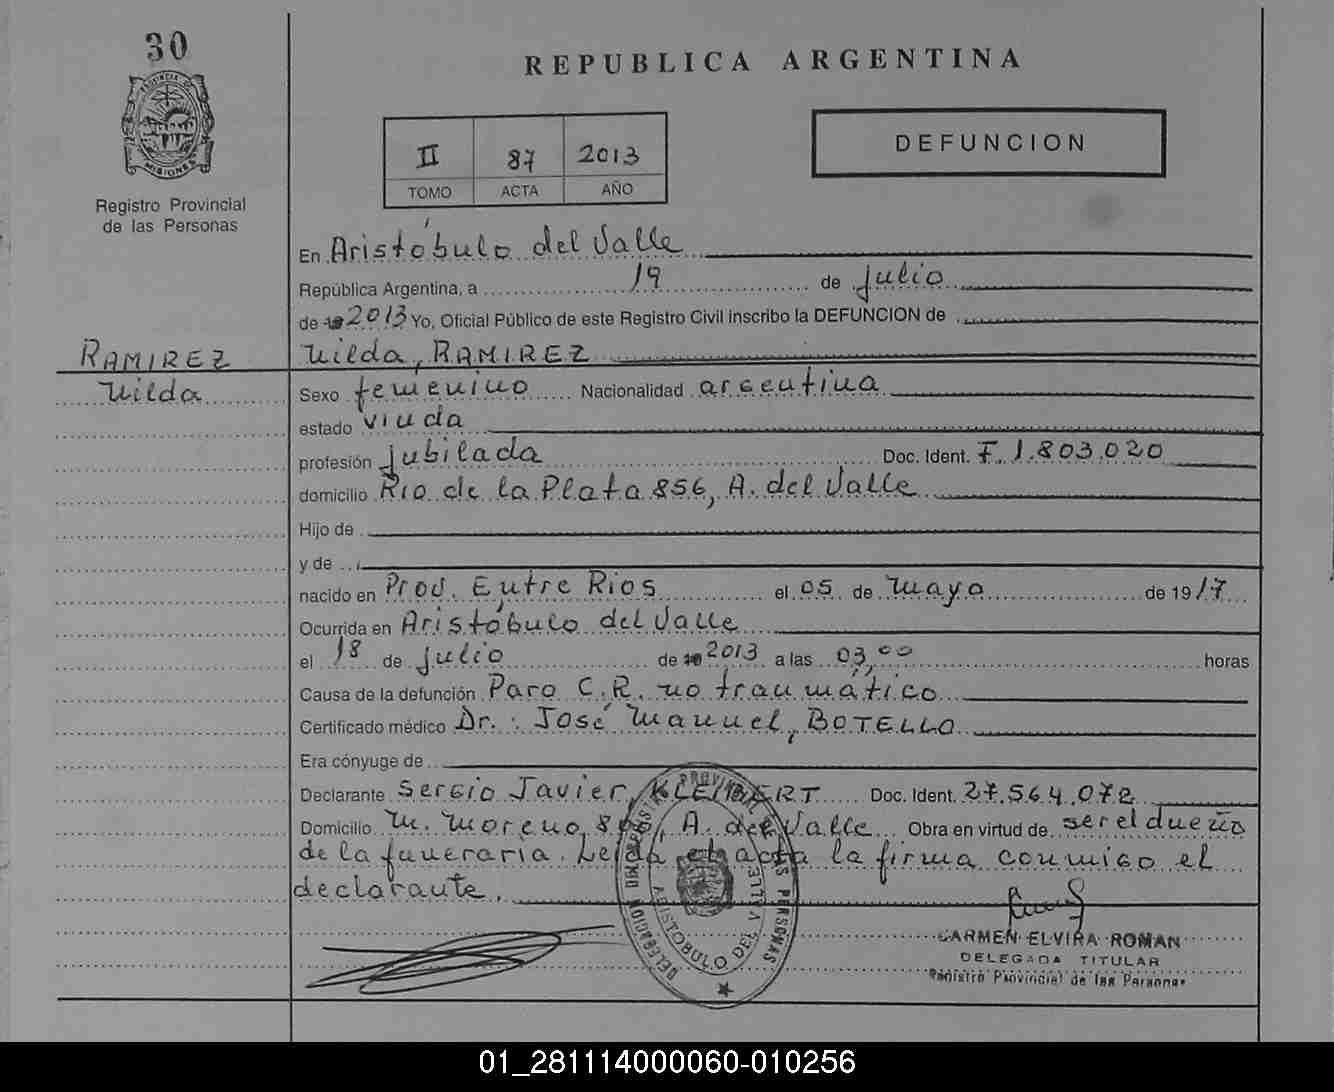 30
PROVINCIA DE
MISIONES
Registro Provincial
de las Personas
REPUBLICA ARGENTINA
II 87 2013
TOMO ACTA AÑO
DEFUNCION
En Aristóbulo del Valle
República Argentina, a 19 de julio
de 2013 Yo, Oficial Público de este Registro Civil inscribo la DEFUNCION de
RAMIREZ
Nilda
Nilda, RAMIREZ
Sexo femenino Nacionalidad argentina
estado viuda
profesión jubilada Doc. Ident. F. 1.803.020
domicilio Rio de la Plata 856, A. del Valle
Hijo de
y de
nacido en Prov. Entre Rios el 05 de Mayo de 1917
Ocurrida en Aristóbulo del Valle
el 18 de julio de 2013 a las 03,00 horas
Causa de la defunción Paro C.R. no traumático
Certificado médico Dr.: José Manuel, BOTELLO
Era cónyuge de
Declarante Sergio Javier, KLEIBERT Doc. Ident. 27.564.072
Domicilio M. Moreno, A. del Valle Obra en virtud de ser el dueño
de la funeraria. Leída el acta la firma conmigo el
declarante.
DELEGACION DEL REGISTRO PROVINCIAL DE LAS PERSONAS
ARISTOBULO DEL VALLE
CARMEN ELVIRA ROMAN
DELEGADA TITULAR
Registro Provincial de las Personas
01_281114000060-010256